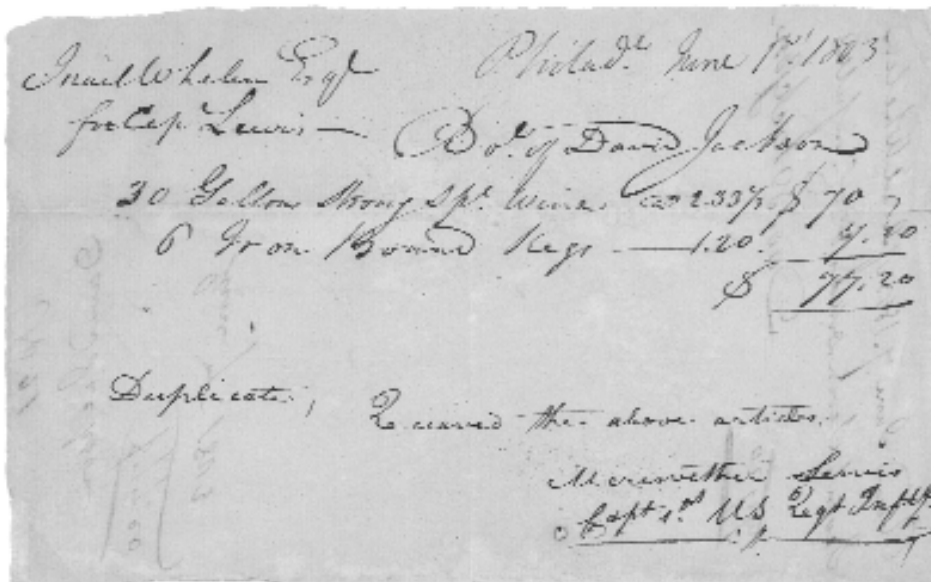 Israel Whelen Esqr Philada. June 1st. 1803
for Capt Lewis — Bot. of David Jackson
30 Gallons Strong Spt. Wine @ 2.33⅓ $ 70
6 Iron Bound Kegs — 1.20. 7.20
$ 77.20
Duplicate, Received the above articles.
Meriwether Lewis
Capt. 1st. US Regt Inft.